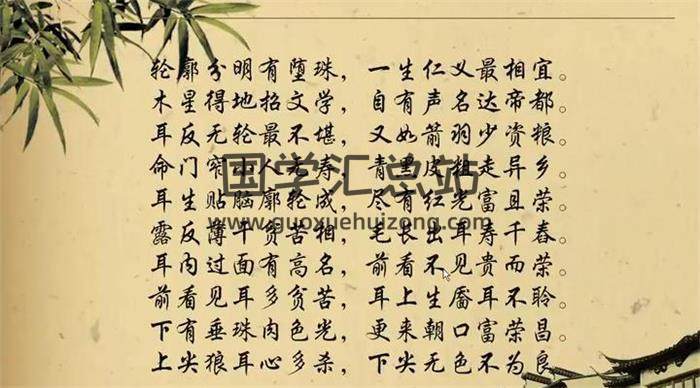 轮廓分明有堕珠，一生仁义最相宜。
木星得地招文学，自有声名达帝都。
耳反无轮最不堪，又如箭羽少资粮。
命门窄小人无寿，青黑皮粗走异乡。
国学汇总站
耳生贴脑廓轮成，尽有红光富且荣
www.guoxuehuizong.com
露反薄干贫苦相，毛长出耳寿千舂。
耳内过面有高名，前看不见贵而荣
前看见耳多贫苦，耳上生靥耳不聆。
下有垂珠肉色光，更来朝口富荣昌。
上尖狼耳心多杀，下尖无色不为良